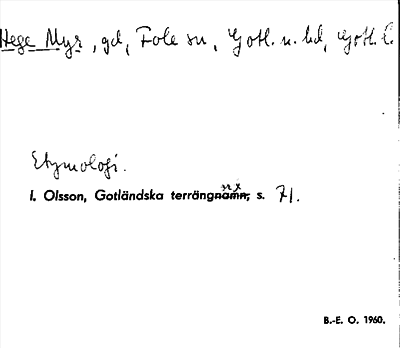 Hege Myr, gd, Fole sn, Gotl. n. hd, Gotl. l.
Etymologi.
I. Olsson, Gotländska terrängnamn, s. 71.
B.-E. O. 1960.